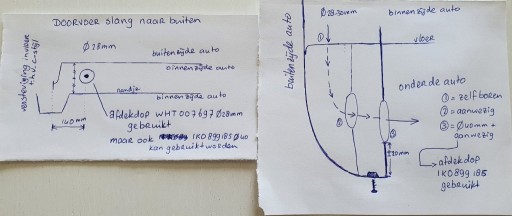 DOORVOER slang naar buiten
Ø28mm
buitenzijde auto
binnenzijde auto
binnenzijde auto
140mm
afdekdop WHT 007697 Ø28mm
gebruikt
maar ook 1K0899185 Ø40
kan gebruikt worden
buitenzijde auto
Ø28-30mm
binnenzijde auto
vloer
onderde auto
① = zelf boren
② = aanwezig
③ = Ø40mm +
aanwezig
①
②
③
20mm
afdekdop
1K0 899 185
gebruikt